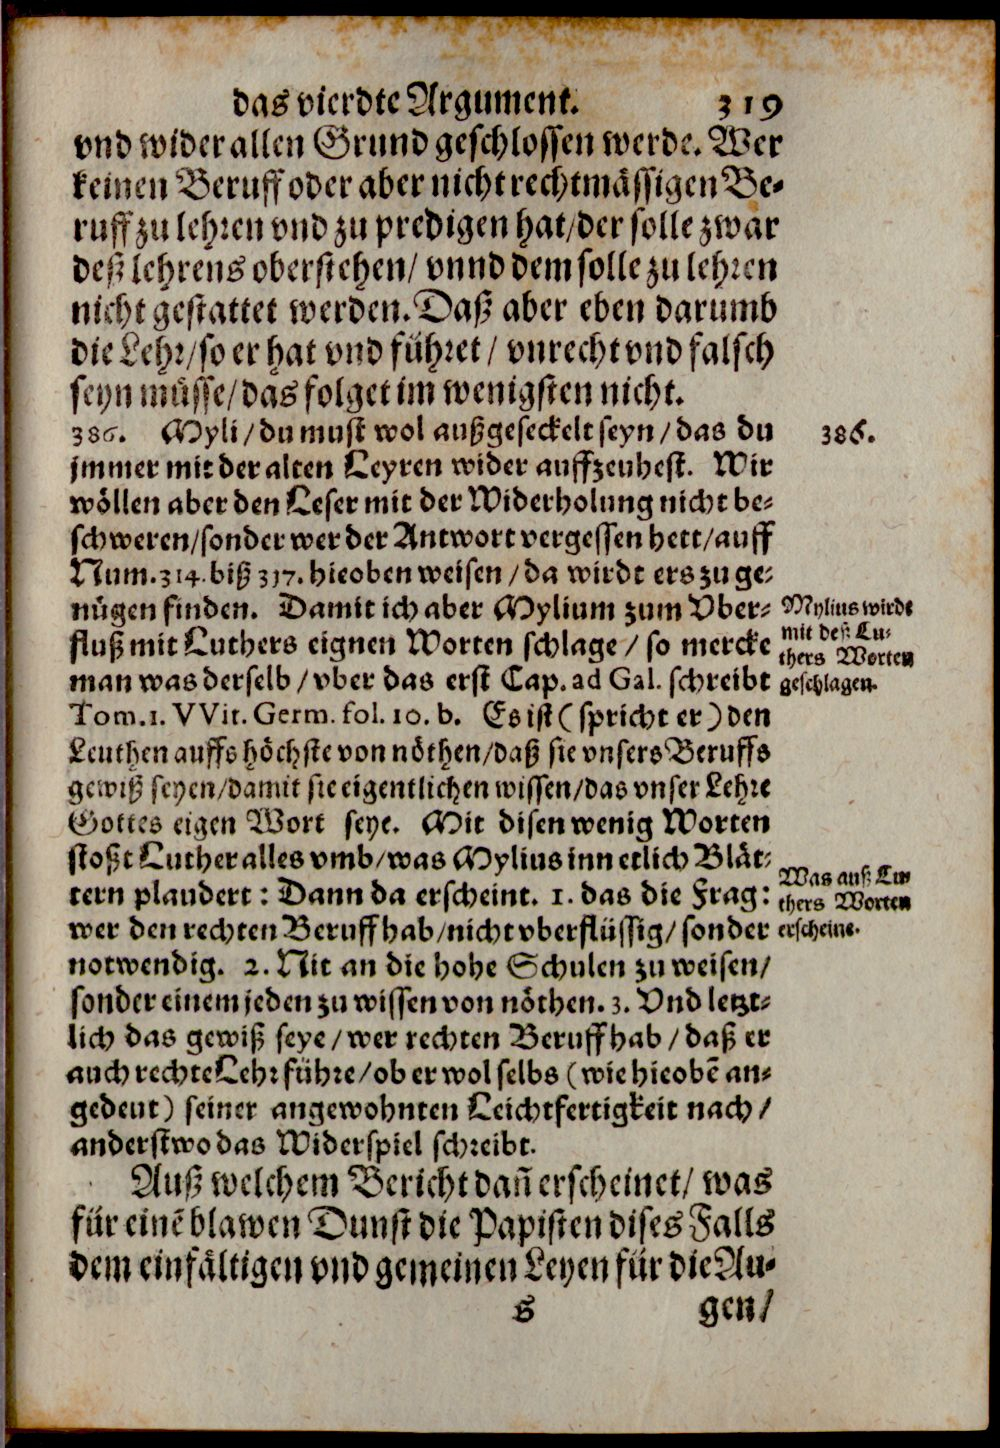 das vierdte Argument. 319
vnd wider allen Grund geschlossen werde. Wer
keinen Beruff oder aber nicht rechtmässigen Be-
ruff zu lehren vnd zu predigen hat/der solle zwar
deß lehrens oberstehen/ vnnd dem solle zu lehren
nicht gestattet werden. Daß aber eben darumb
die Lehr/so er hat vnd führet/ vnrecht vnd falsch
seyn müsse/das folget im wenigsten nicht.
386. Myli/du must wol außgeseckelt seyn/das du 386.
jmmer mit der alten Leyren wider auffzeuhest. Wir
wöllen aber den Leser mit der Widerholung nicht be-
schweren/sonder wer der Antwort vergessen hett/auff
Num.314.biß 317.hieoben weisen/da wirdt ers zu ge-
nügen finden. Damit ich aber Mylium zum Vber-
fluß mit Luthers eignen Worten schlage/ so mercke
man was derselb/vber das erst Cap.ad Gal. schreibt
Mylius wirdt
mit deß Lu-
thers Worten
geschlagen.
Tom.1. VVit. Germ. fol. 10. b. Es ist (spricht er) den
Leuthen auffs höchste von nöthen/daß sie vnsers Beruffs
gewiß seyen/damit sie eigentlichen wissen/das vnser Lehre
Gottes eigen Wort seye. Mit disen wenig Worten
stoßt Luther alles vmb/was Mylius inn etlich Blät-
tern plaudert: Dann da erscheint. 1. das die Frag:
wer den rechten Beruff hab/nicht vberflüssig/sonder
Was auß Lu-
thers Worten
erscheine.
notwendig. 2. Nit an die hohe Schulen zu weisen/
sonder einem jeden zu wissen von nöthen. 3. Vnd letzt-
lich das gewiß seye/wer rechten Beruff hab/daß er
auch rechte Lehr führe/ob er wol selbs (wie hieobē an-
gedeut) seiner angewohnten Leichtfertigkeit nach/
anderstwo das Widerspiel schreibt.
Auß welchem Bericht dañ erscheinet/ was
für einē blawen Dunst die Papisten dises Falls
dem einfältigen vnd gemeinen Leyen für die Au-
s gen/